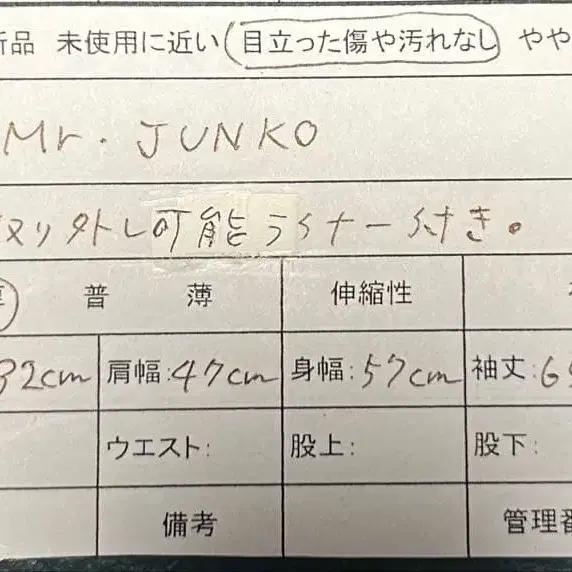 新品 未使用に近い 目立った傷や汚れなし やや
Mr. JUNKO
取り外し可能ライナー付き。
厚 普 薄 伸縮性
82cm 肩幅:47cm 身幅:57cm 袖丈:6
ウエスト: 股上: 股下:
備考 管理番